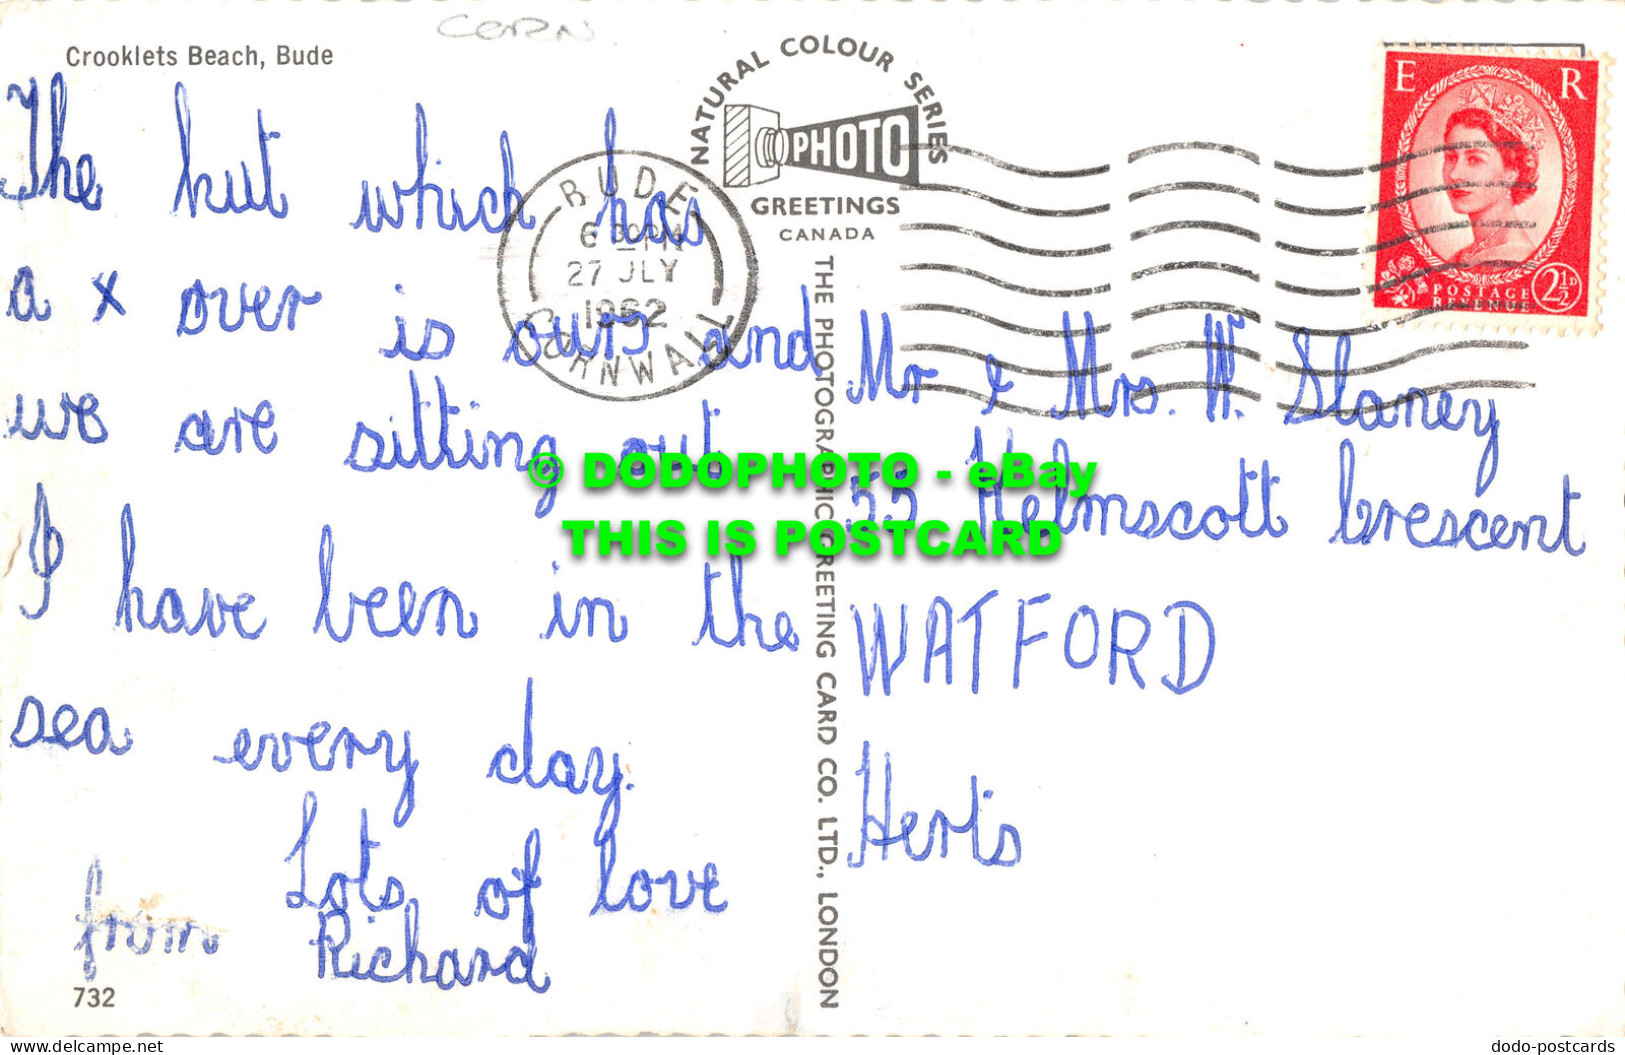 CORN
Crooklets Beach, Bude
The hut which has
a x over is ours and
we are sitting out
I have been in the
sea every day.
Lots of love
from Richard
732
NATURAL COLOUR SERIES
PHOTO
GREETINGS
CANADA
BUDE
6 30 PM
27 JLY
1962
CORNWALL
THE PHOTOGRAPHIC GREETING CARD CO. LTD., LONDON
E R
POSTAGE
REVENUE
2½D
Mr & Mrs. W. Slaney
55 Helmscott Crescent
WATFORD
Herts
© DODOPHOTO - eBay
THIS IS POSTCARD
www.delcampe.net
dodo-postcards